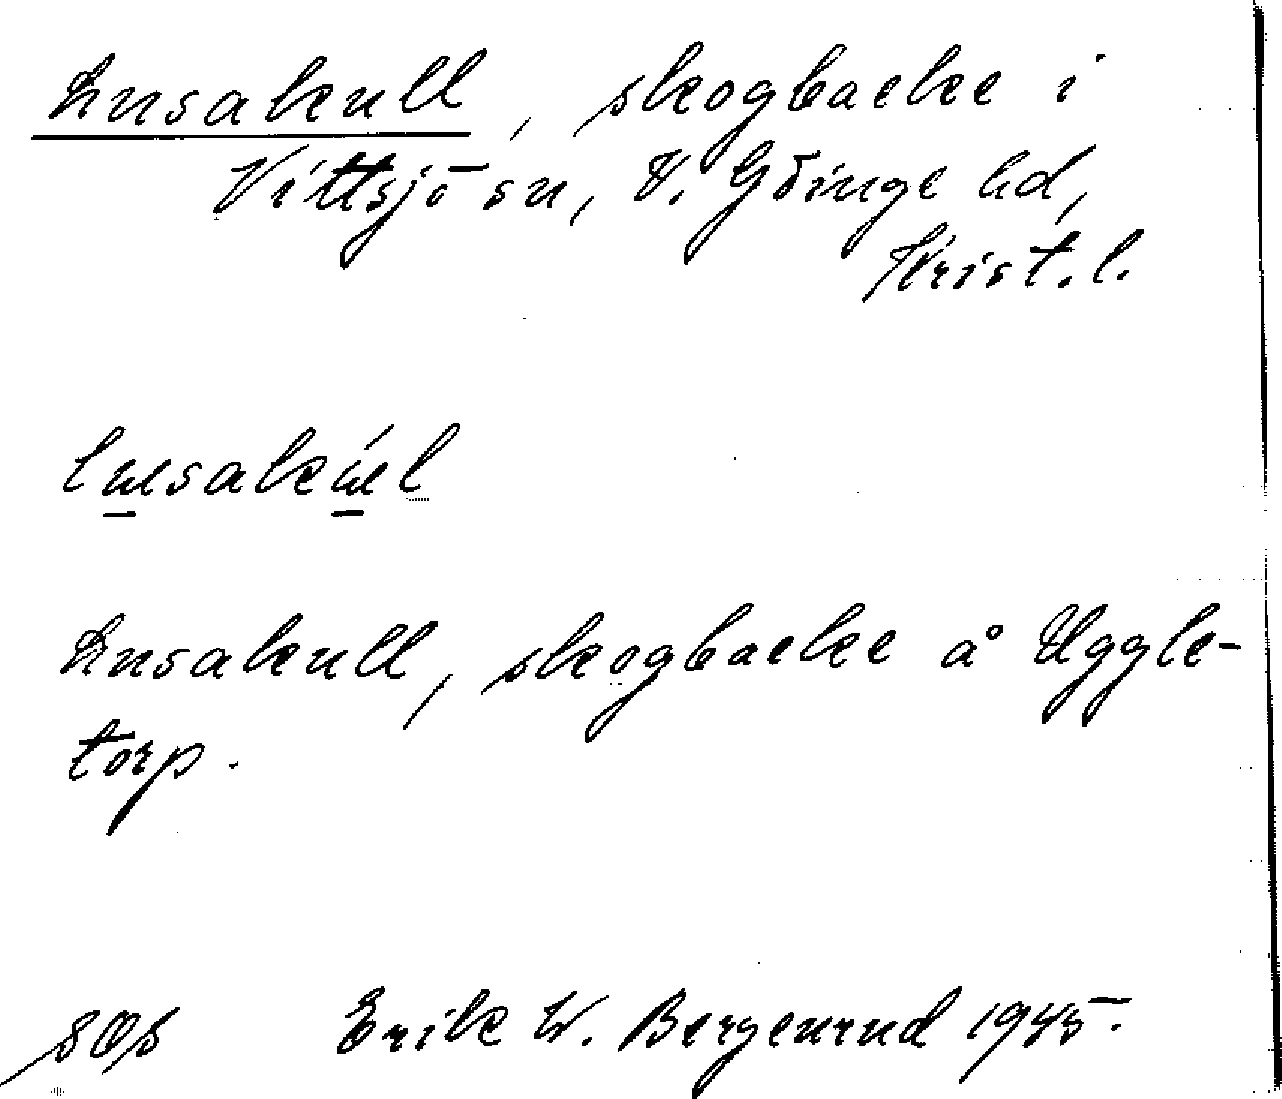 Lusakull, skogbacke i
Vittsjö sn, V. Göinge hd,
Krist. l.
lusakúl
Lusakull, skogbacke å Uggle-
torp.
Erik W. Bergenrud 1945.